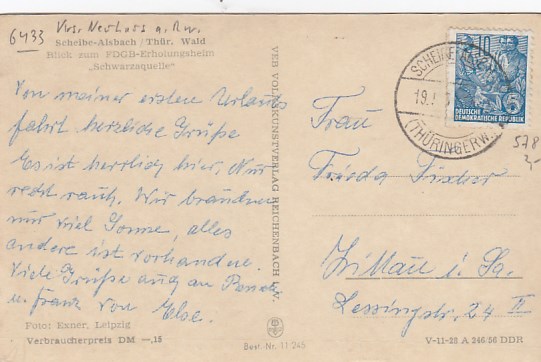 6433 Krs. Neuhaus a. Rw.
Scheibe-Alsbach / Thür. Wald
Blick zum FDGB-Erholungsheim
„Schwarzaquelle"
Von meiner ersten Urlaubs
fahrt herzliche Grüße
Es ist herrlich hier. Nur
recht rauh. Wir brauchen
nur viel Sonne, alles
andere ist vorhanden.
Viele Grüße auch an
u. Franz von Else.
Foto: Exner, Leipzig
Verbraucherpreis DM —.15
VEB VOLKSKUNSTVERLAG REICHENBACH i. V.
Best. Nr. 11 245
10
DEUTSCHE
DEMOKRATISCHE REPUBLIK
SCHEIBE
19.
(THÜRINGERW.)
578
2,-
Frau
Frieda
Zittau i. Sa.
Lessingstr. 24 II
V-11-28 A 246/56 DDR